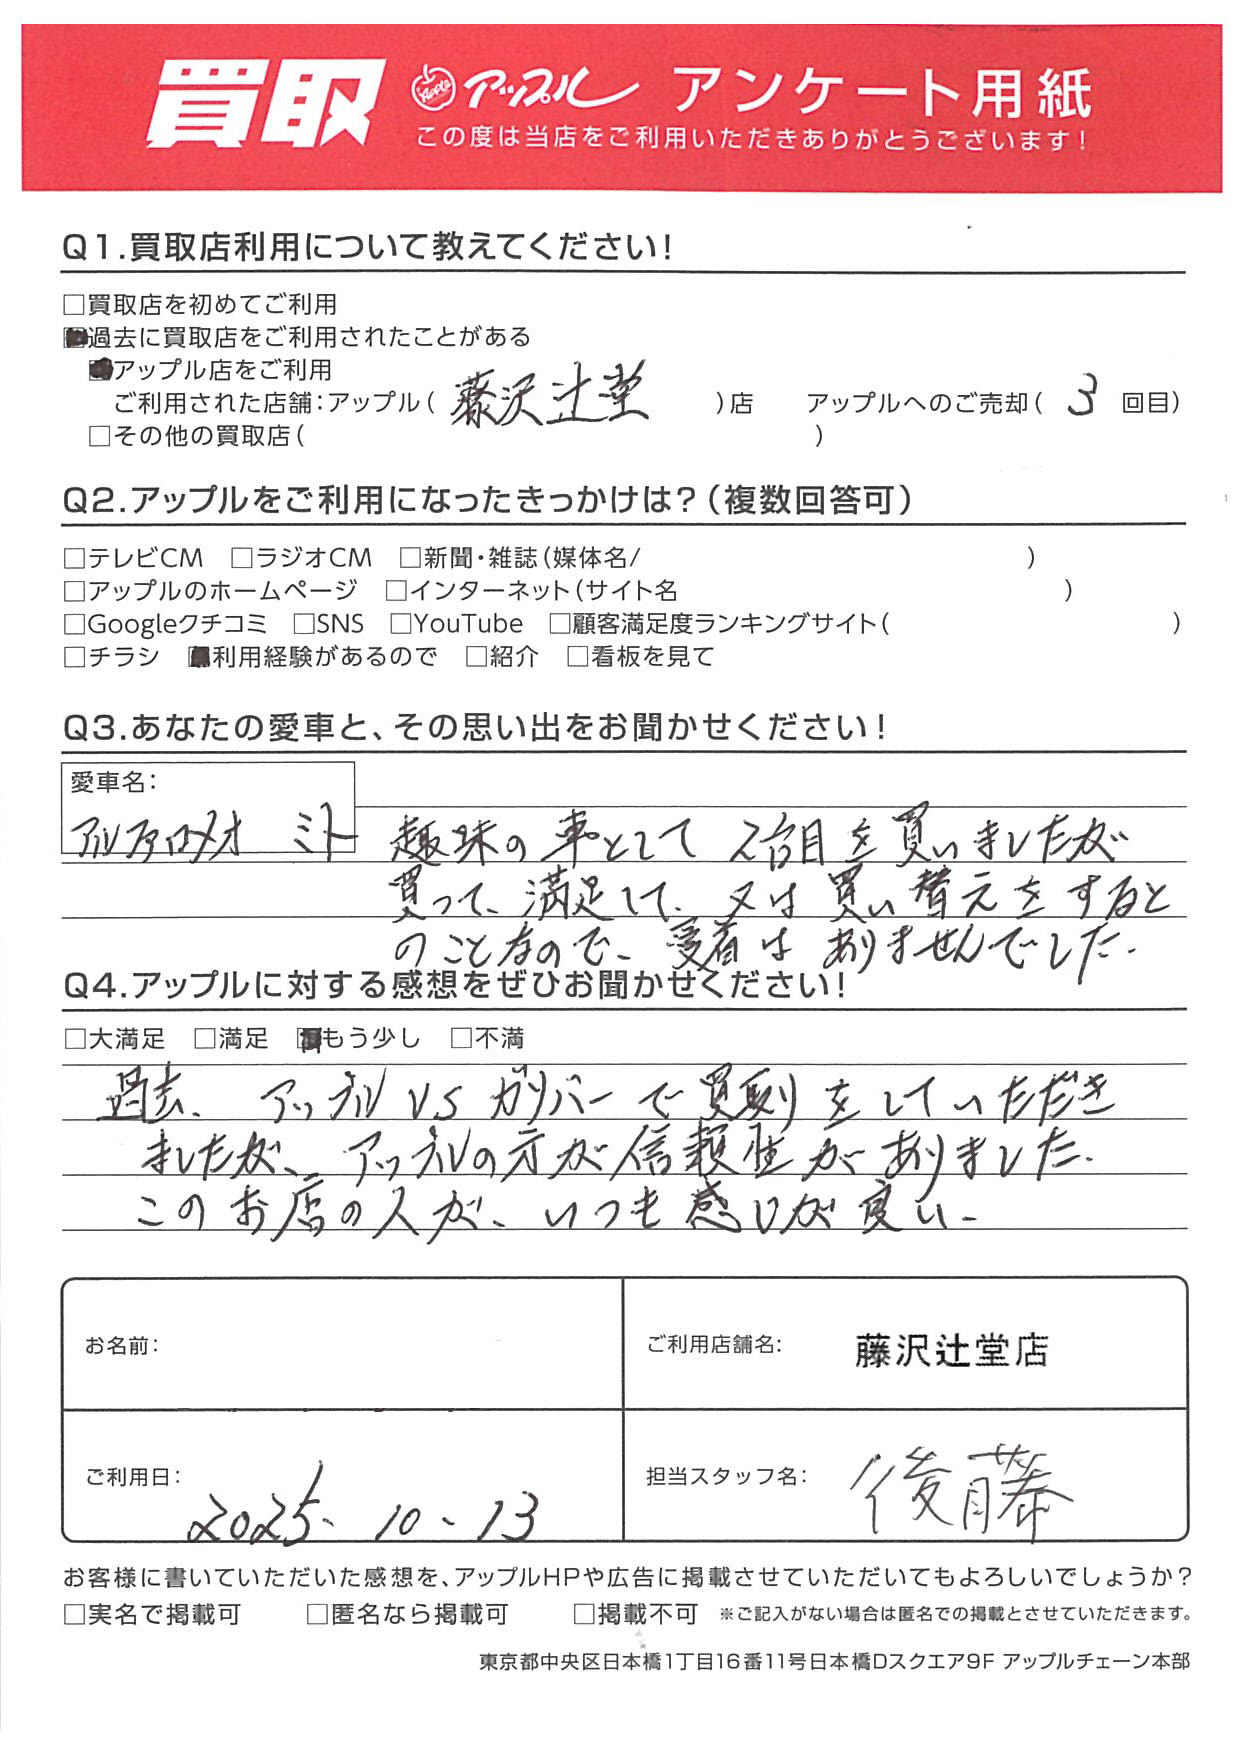 買取 Apple アップル アンケート用紙
この度は当店をご利用いただきありがとうございます！
Q1.買取店利用について教えてください！
□買取店を初めてご利用
■過去に買取店をご利用されたことがある
■アップル店をご利用
ご利用された店舗：アップル（ 藤沢辻堂 ）店 アップルへのご売却（ 3 回目）
□その他の買取店（ ）
Q2.アップルをご利用になったきっかけは？（複数回答可）
□テレビCM □ラジオCM □新聞・雑誌（媒体名/ ）
□アップルのホームページ □インターネット（サイト名 ）
□Googleクチコミ □SNS □YouTube □顧客満足度ランキングサイト（ ）
□チラシ ■利用経験があるので □紹介 □看板を見て
Q3.あなたの愛車と、その思い出をお聞かせください！
愛車名：
アルファロメオ ミト 趣味の車として 2台目を買いましたが
買って、満足して、又は買い替えをすると
のことなので、愛着はありませんでした.
Q4.アップルに対する感想をぜひお聞かせください！
□大満足 □満足 ■もう少し □不満
過去、アップルVSガリバーで買取りをしていただき
ましたが、アップルの方が信頼性がありました.
このお店の人が、いつも感じが良い.
お名前：
ご利用店舗名： 藤沢辻堂店
ご利用日： 2025. 10. 13
担当スタッフ名： 後藤
お客様に書いていただいた感想を、アップルHPや広告に掲載させていただいてもよろしいでしょうか？
□実名で掲載可 □匿名なら掲載可 □掲載不可 ※ご記入がない場合は匿名での掲載とさせていただきます。
東京都中央区日本橋1丁目16番11号日本橋Dスクエア9F アップルチェーン本部